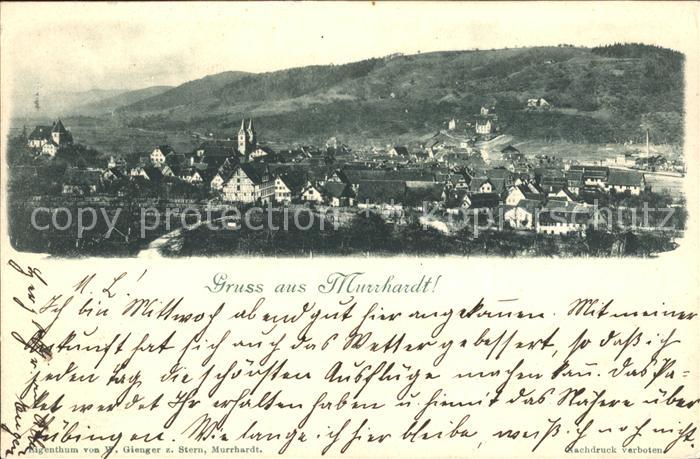 copy protection Kopierschutz
Gruss aus Murrhardt!
M. L.!
Ich bin Mittwoch abend gut hier angekommen. Mit meiner
Ankunft hat sich auch das Wetter gebessert, so daß ich
jeden Tag die schönsten Ausflüge machen kann. Das Pa-
ket werdet Ihr erhalten haben u. hiemit das Nähere über
Tübingen. Wie lange ich hier bleibe, weiß ich noch nicht.
Eigenthum von W. Gienger z. Stern, Murrhardt.
Nachdruck verboten.